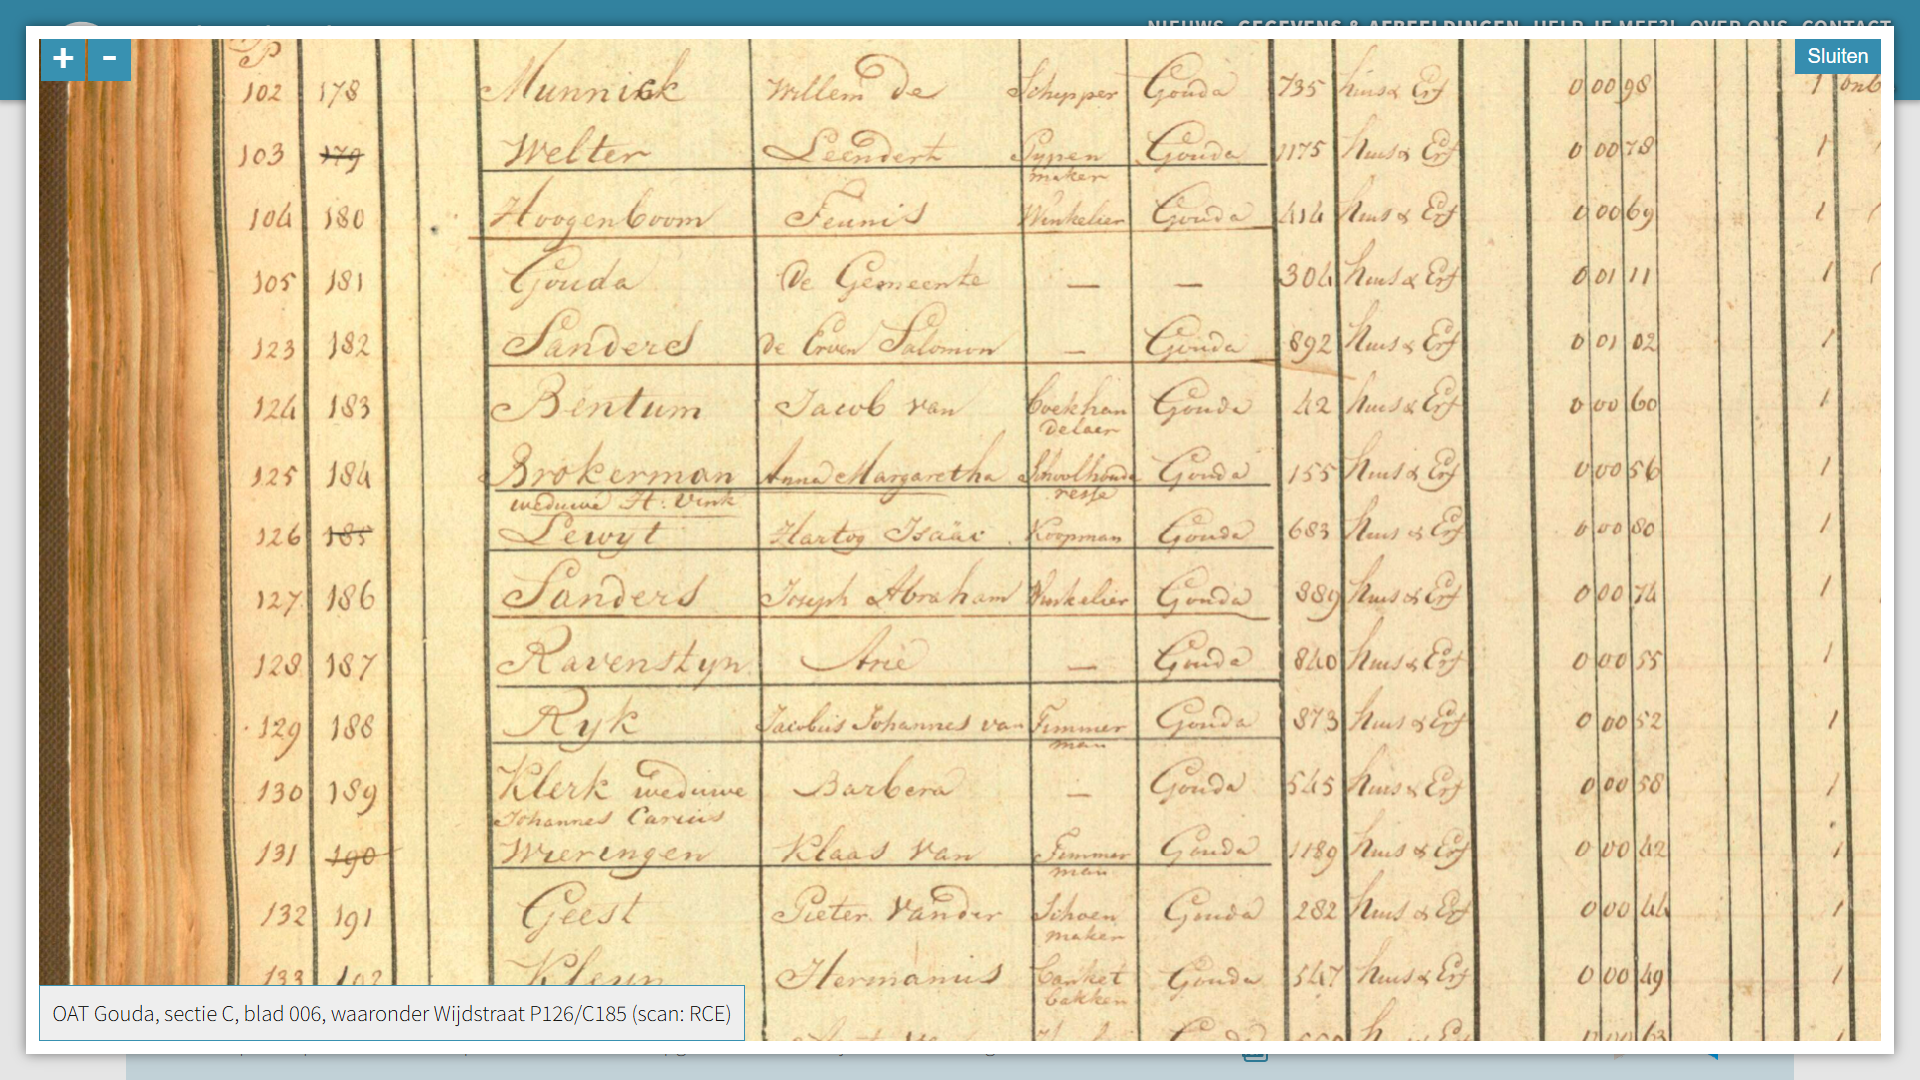 NIEUWS GEGEVENS & AFBEELDINGEN HELP JE MEE?! OVER ONS CONTACT
+ -
Sluiten
P
102 178 Munnick Willem de Schipper Gouda 735 huis & Erf 0 00 98 1 onb
103 179 Welter Leendert Pypen maker Gouda 1175 huis & Erf 0 00 78 1
104 180 Hoogenboom Teunis Winkelier Gouda 414 huis & Erf 0 00 69 1
105 181 Gouda De Gemeente — — 304 huis & Erf 0 01 11 1
123 182 Sanders de Erven Salomon — Gouda 892 huis & Erf 0 01 02 1
124 183 Bentum Jacob van Boekhan delaer Gouda 42 huis & Erf 0 00 60 1
125 184 Brokerman Anna Margaretha Schoolhoude resse Gouda 155 huis & Erf 0 00 56 1
weduwe H. Vink
126 185 Lewyt Hartog Isaäc Koopman Gouda 683 huis & Erf 0 00 80 1
127 186 Sanders Joseph Abraham Winkelier Gouda 889 huis & Erf 0 00 74 1
128 187 Ravenstyn Arie — Gouda 840 huis & Erf 0 00 55 1
129 188 Ryk Jacobus Johannes van Timmer man Gouda 873 huis & Erf 0 00 52 1
130 189 Klerk weduwe Barbera — Gouda 545 huis & Erf 0 00 58 1
Johannes Carius
131 190 Wieringen Klaas van Timmer man Gouda 1189 huis & Erf 0 00 42 1
132 191 Geest Pieter van der Schoen maker Gouda 282 huis & Erf 0 00 44 1
133 192 Kleyn Hermanus Banket bakker Gouda 547 huis & Erf 0 00 49 1
0 00 63 1
OAT Gouda, sectie C, blad 006, waaronder Wijdstraat P126/C185 (scan: RCE)